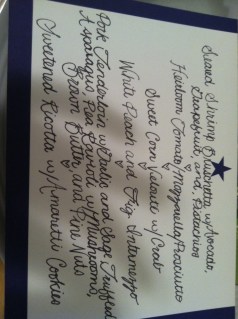 Seared Shrimp Bruschetta w/Avocado,
Grapefruit, and Pistachios
Heirloom Tomato/Mozzarella/Prosciutto
Sweet Corn Veloute w/Crab
White Peach and Fig Intermezzo
Pork Tenderloin w/Garlic and Sage Truffled
Asparagus Pea Ravioli w/Mushrooms,
Brown Butter, and Pine Nuts
Sweetened Ricotta w/Amaretti Cookies